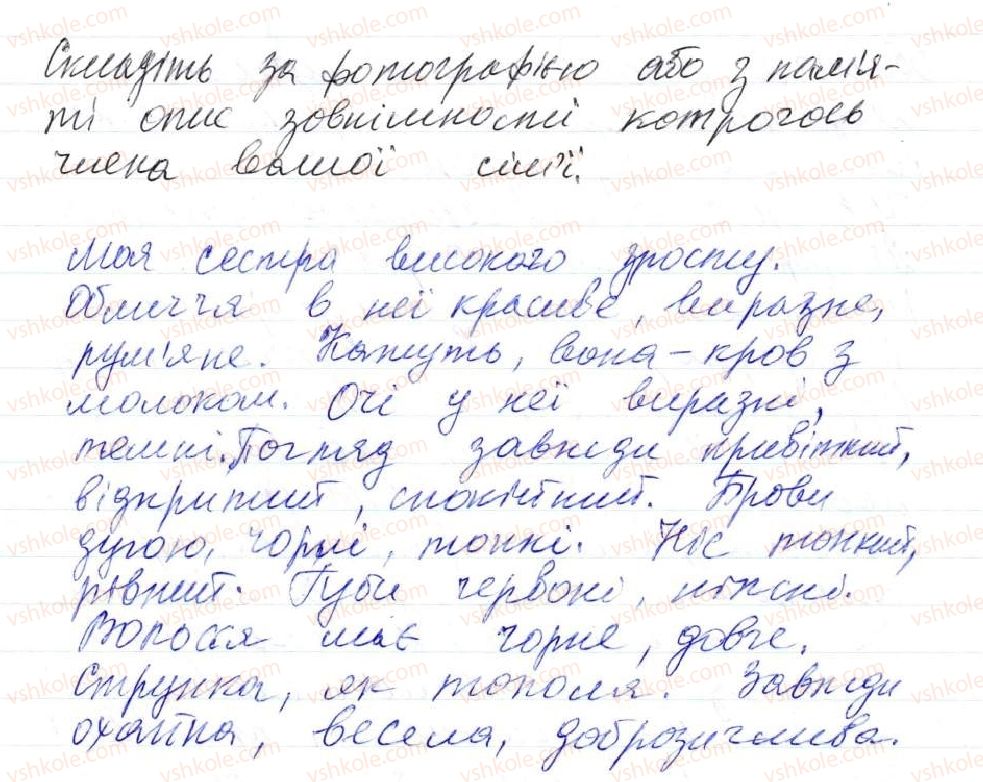 Складіть за фотографією або з пам'я-
ті опис зовнішності котрогось
члена вашої сім'ї.
Моя сестра високого зросту.
Обличчя в неї красиве, виразне,
рум'яне. Кажуть, вона – кров з
молоком. Очі у неї виразні,
темні. Погляд завжди привітний,
відкритий, спокійний. Брови
дугою, чорні, тонкі. Ніс тонкий,
рівний. Губи червоні, ніжні.
Волосся має чорне, довге.
Струнка, як тополя. Завжди
охайна, весела, доброзичлива.